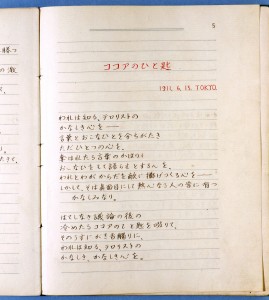 5
ココアのひと匙
1911. 6. 15. TOKYO
われは知る、テロリストの
かなしき心を――
言葉とおこなひとを分ちがたき
ただひとつの心を、
奪はれたる言葉のかはりに
おこなひをもて語らむとする心を、
われとわがからだを敵に擲げつくる心を――
しかして、そは真面目にして熱心なる人の常に有つ
かなしみなり。
はてしなき議論の後の
冷めたるココアのひと匙を啜りて、
そのうすにがき舌触りに、
われは知る、テロリストの
かなしき、かなしき心を。